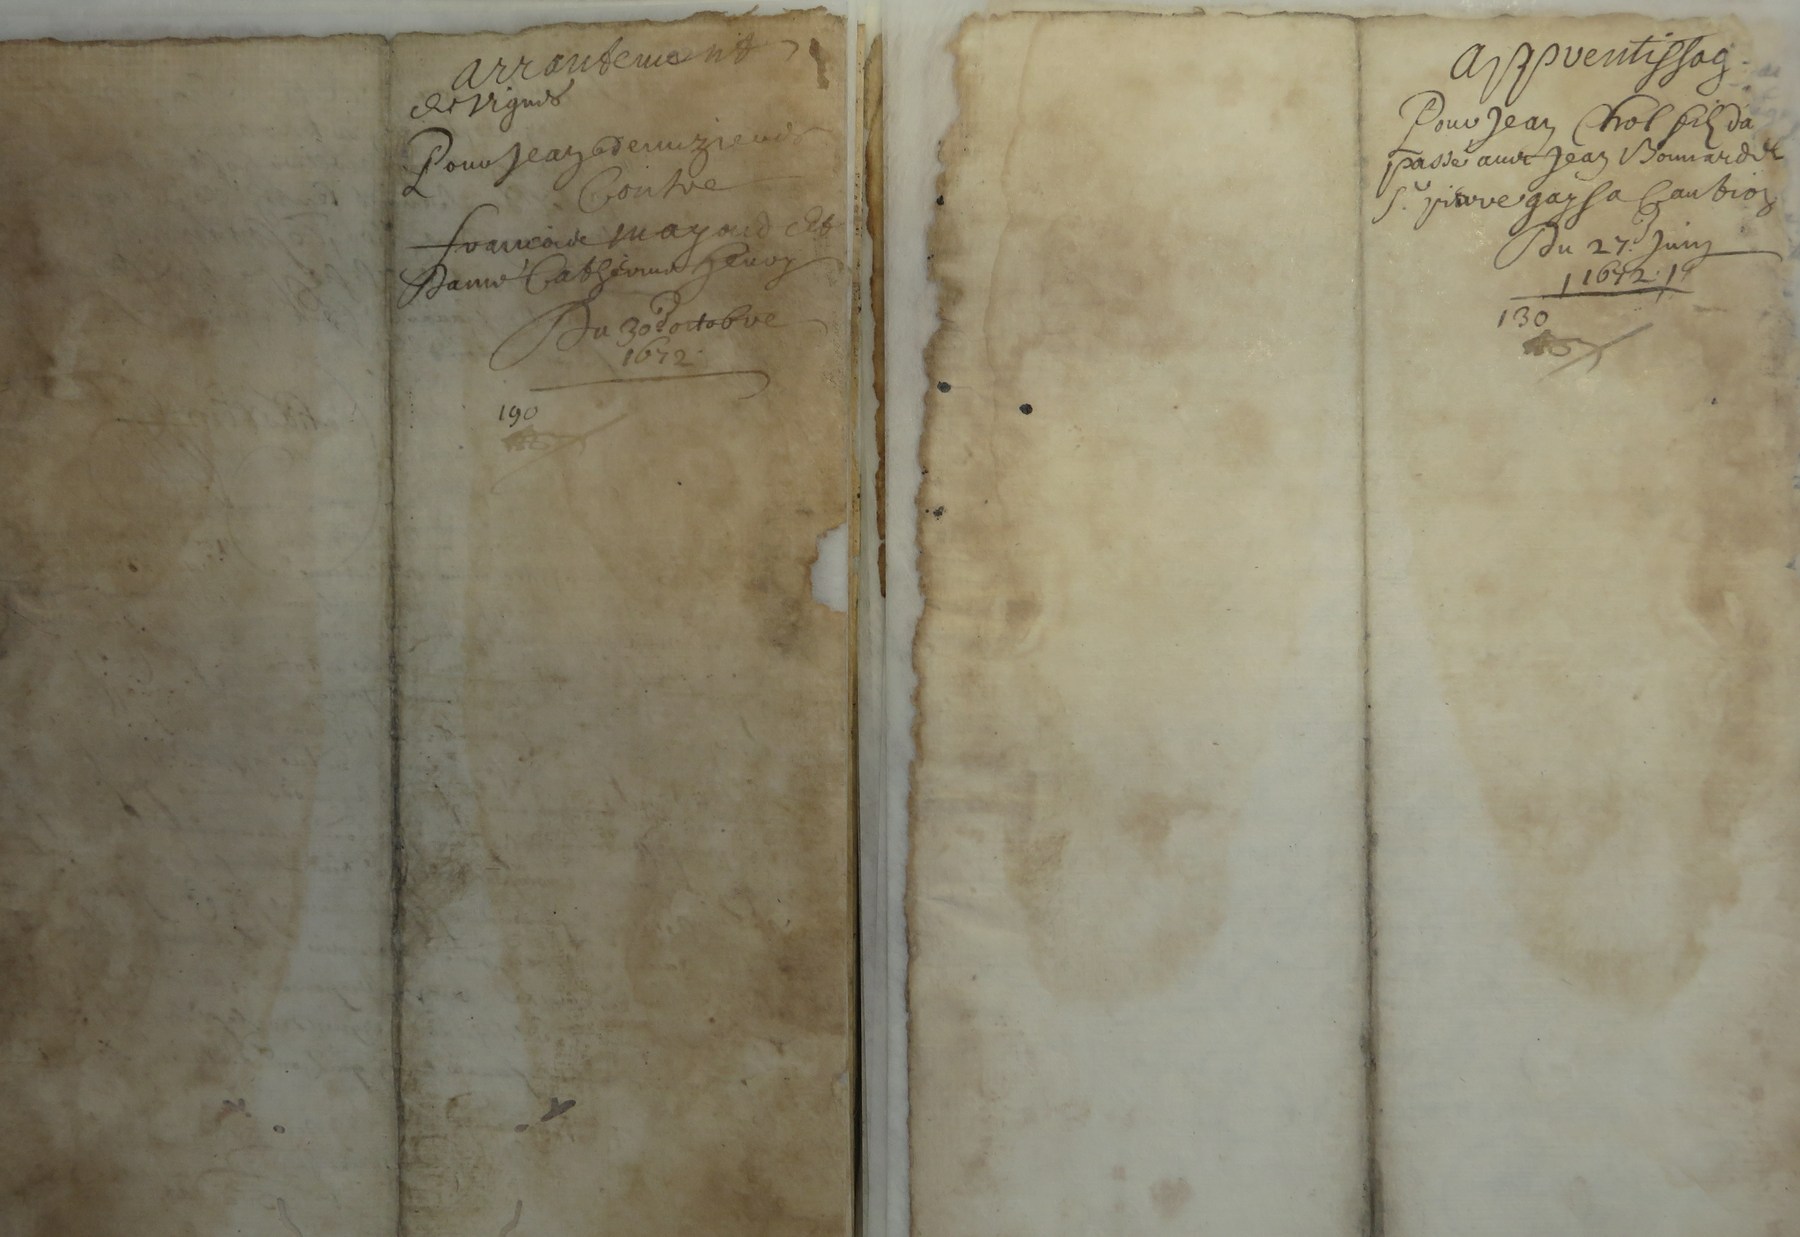 arrantement
de vignes
Pour Jean demezieux
Contre
francoise mayoud et
Dame Catherine henry
Du 30.e octobre
1672.
190
apprentissag
Pour Jean Chol fils da
passé avec Jean Bonnard et
Sr. pierre gay sa Caution
Du 27.e Juin
1672.
130